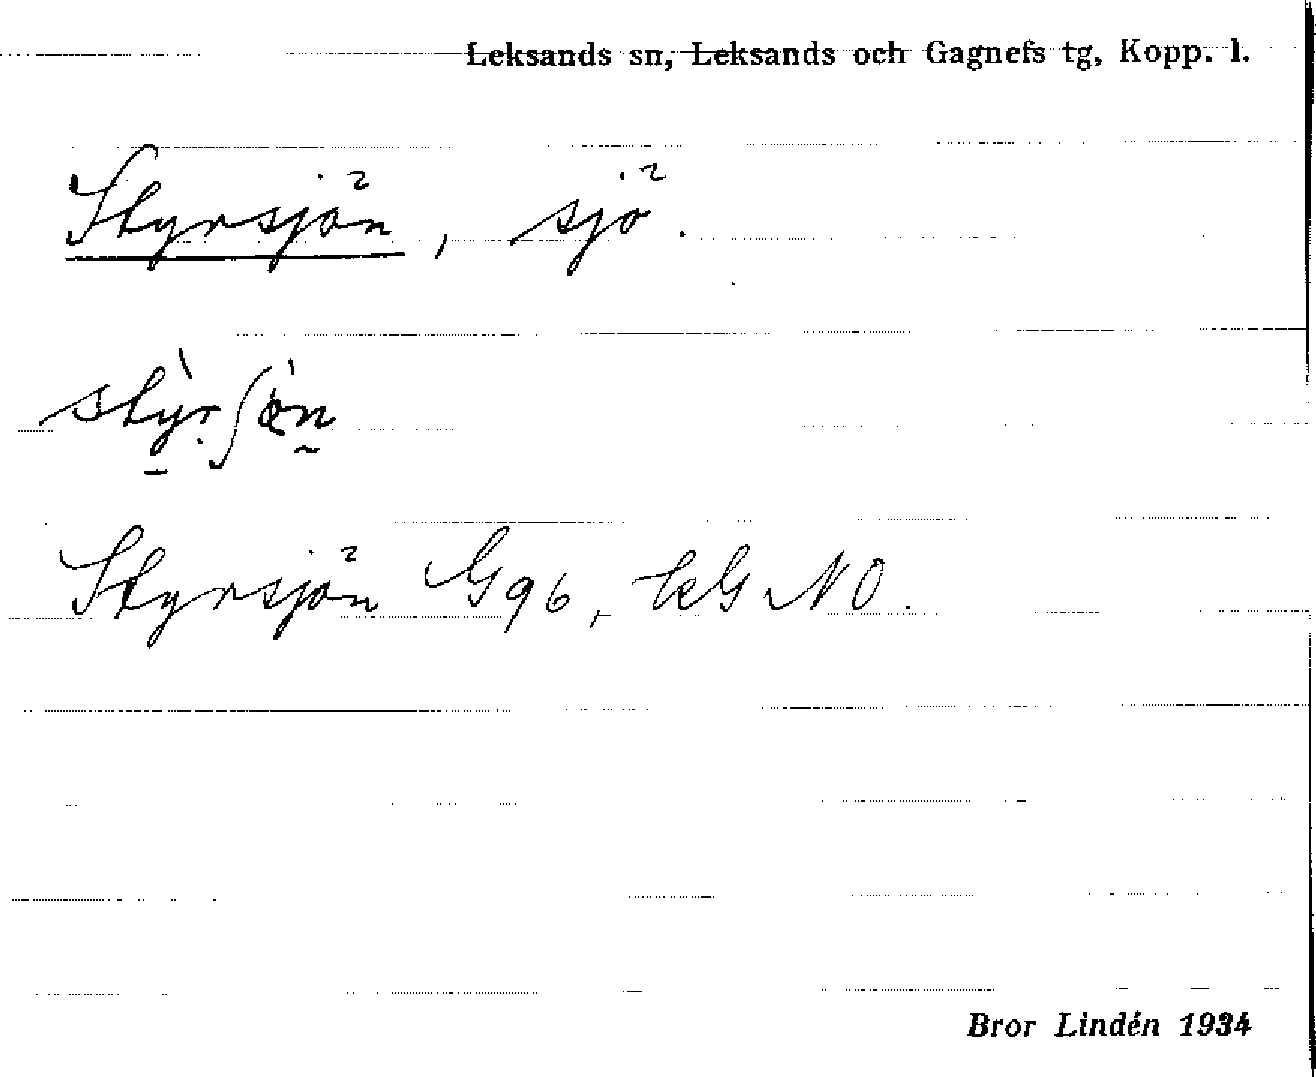 Leksands sn, Leksands och Gagnefs tg, Kopp. l.
Styrsjön, sjö.
Styrsjön G96, kG NO.
Bror Lindén 1934